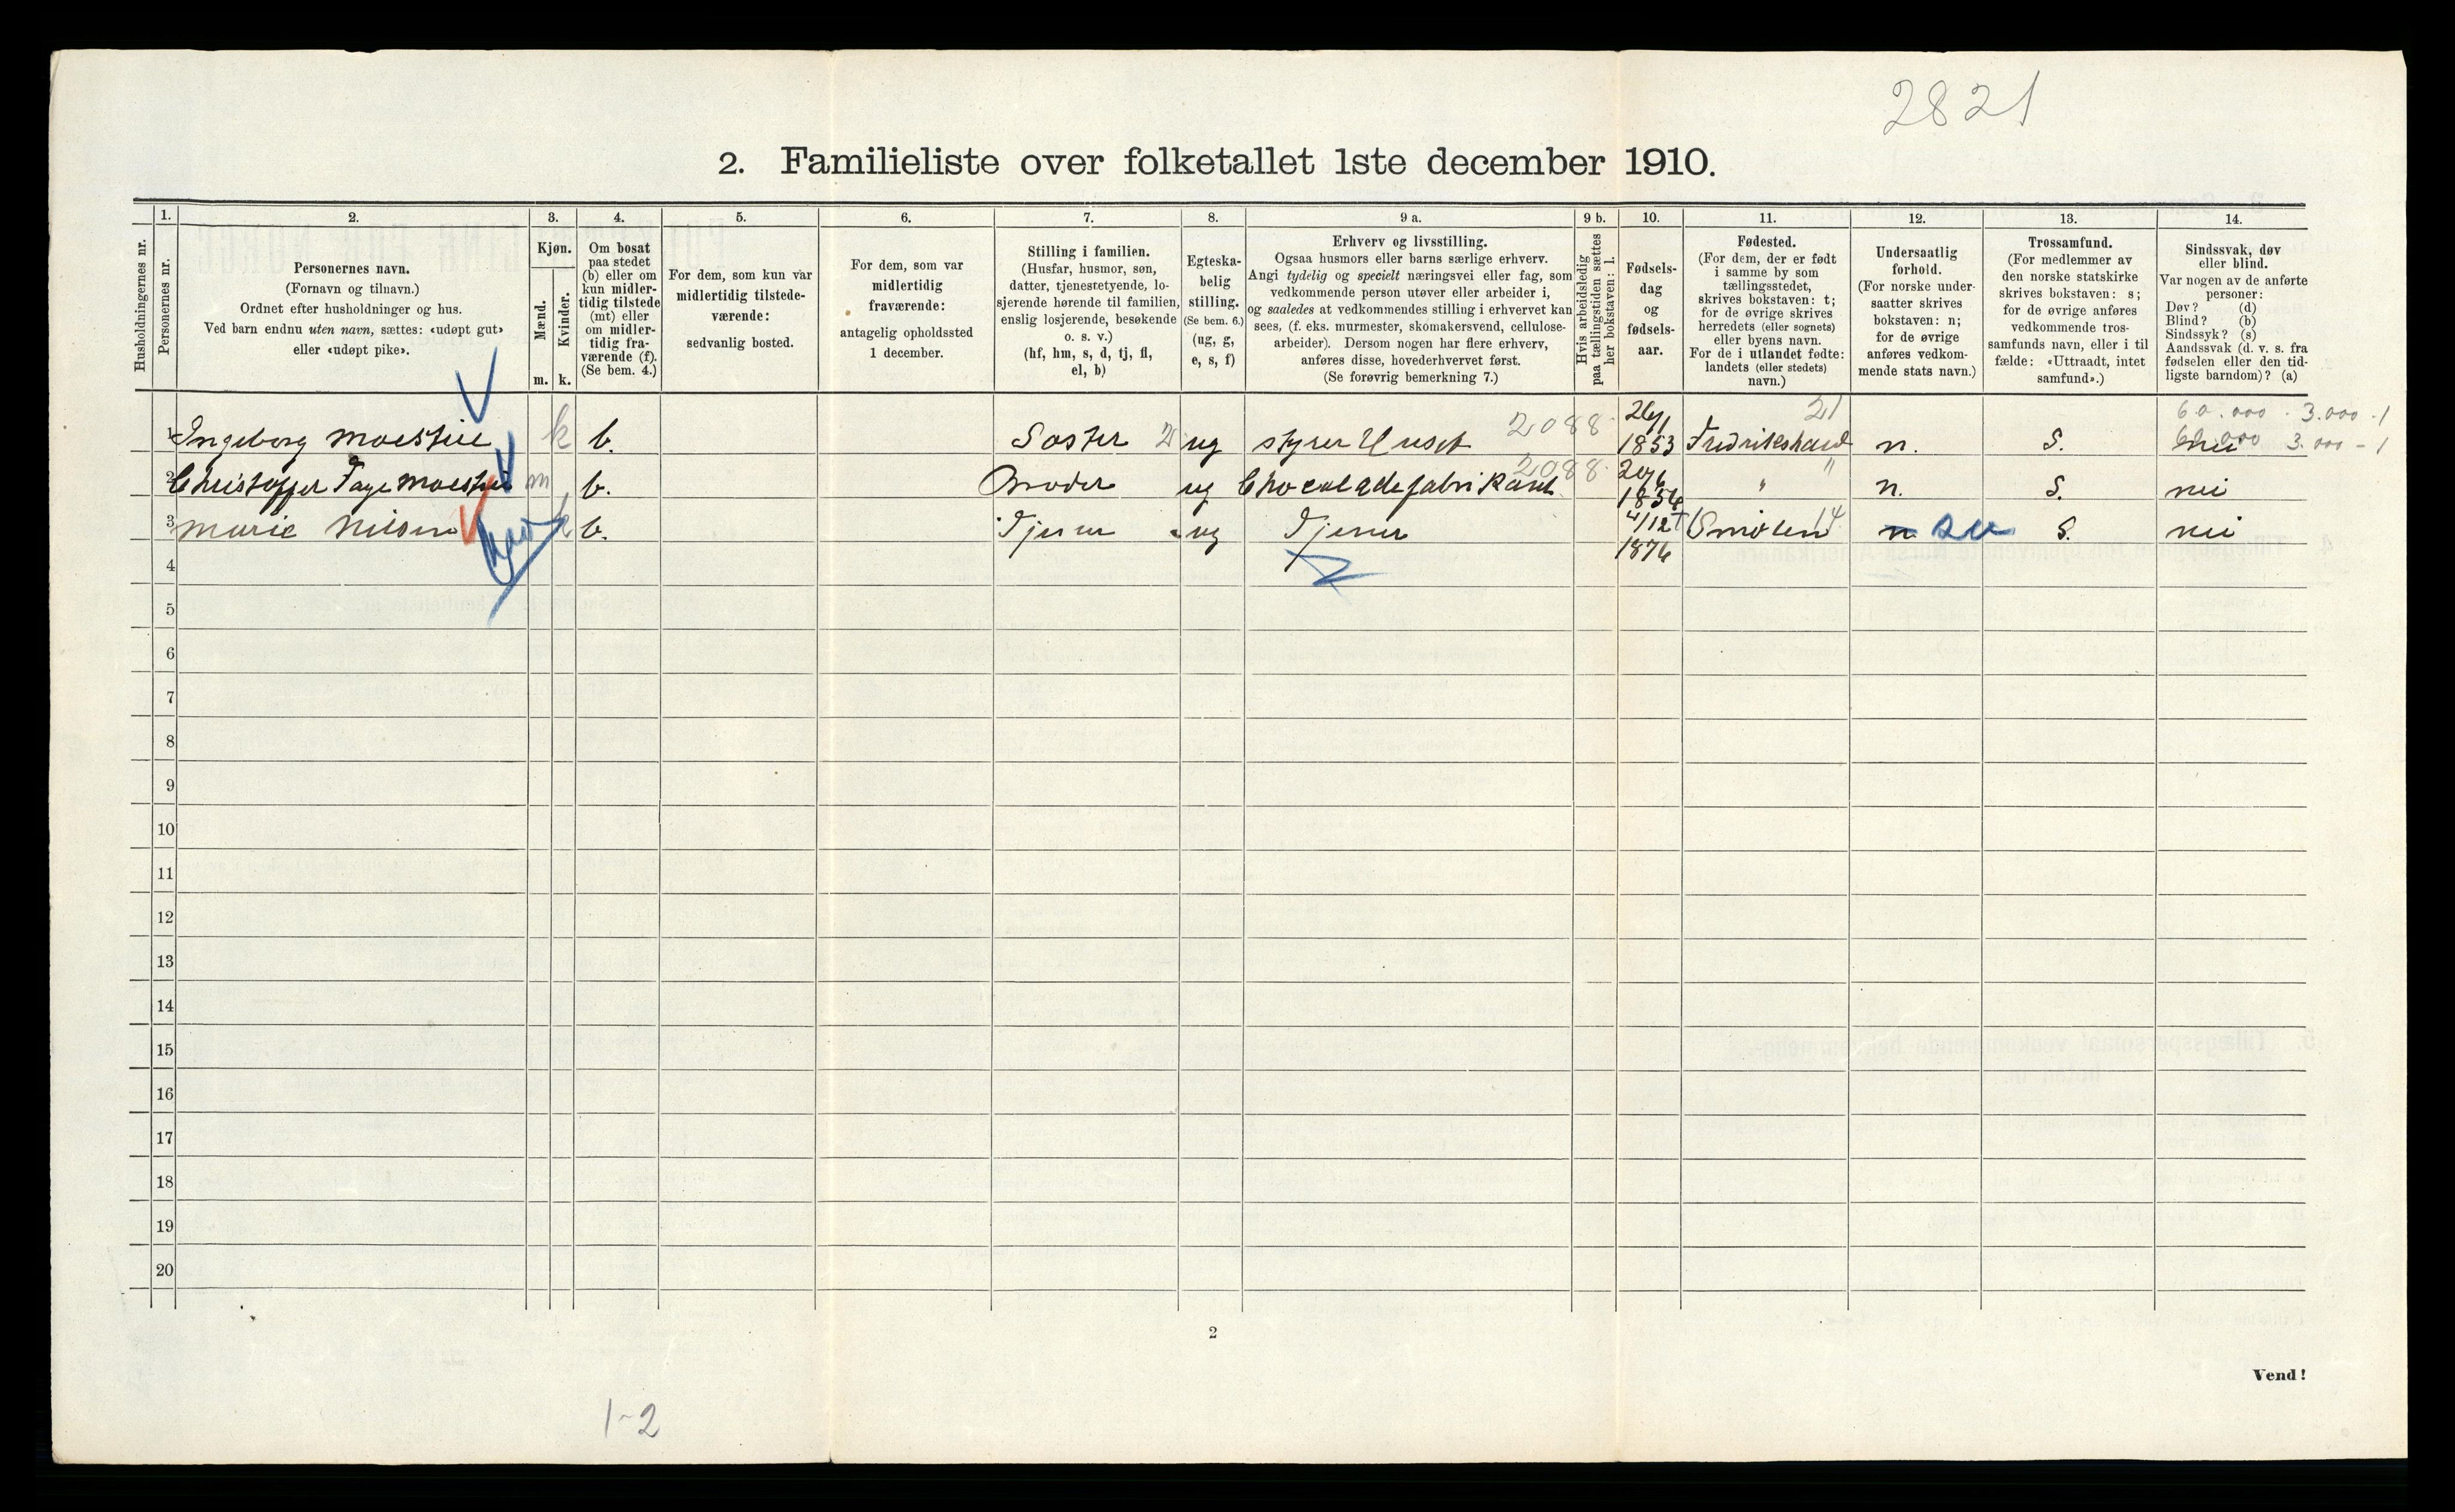 2821
2. Familieliste over folketallet 1ste december 1910.
1. 2. 3. 4. 5. 6. 7. 8. 9 a. 9 b. 10. 11. 12. 13. 14.
Husholdningernes nr.
Personernes nr.
Personernes navn.
(Fornavn og tilnavn.)
Ordnet efter husholdninger og hus.
Ved barn endnu uten navn, sættes: «udøpt gut»
eller «udøpt pike».
Kjøn.
Mænd.
m.
Kvinder.
k.
Om bosat
paa stedet
(b) eller om
kun midler-
tidig tilstede
(mt) eller
om midler-
tidig fra-
værende (f).
(Se bem. 4.)
For dem, som kun var
midlertidig tilstede-
værende:
sedvanlig bosted.
For dem, som var
midlertidig
fraværende:
antagelig opholdssted
1 december.
Stilling i familien.
(Husfar, husmor, søn,
datter, tjenestetyende, lo-
sjerende hørende til familien,
enslig losjerende, besøkende
o. s. v.)
(hf, hm, s, d, tj, fl,
el, b)
Egteska-
belig
stilling.
(Se bem. 6.)
(ug, g,
e, s, f)
Erhverv og livsstilling.
Ogsaa husmors eller barns særlige erhverv.
Angi tydelig og specielt næringsvei eller fag, som
vedkommende person utøver eller arbeider i,
og saaledes at vedkommendes stilling i erhvervet kan
sees, (f. eks. murmester, skomakersvend, cellulose-
arbeider). Dersom nogen har flere erhverv,
anføres disse, hovederhvervet først.
(Se forøvrig bemerkning 7.)
Hvis arbeidsledig
paa tællingstiden sættes
her bokstaven: l.
Fødsels-
dag
og
fødsels-
aar.
Fødested.
(For dem, der er født
i samme by som
tællingsstedet,
skrives bokstaven: t;
for de øvrige skrives
herredets (eller sognets)
eller byens navn.
For de i utlandet fødte:
landets (eller stedets)
navn.)
Undersaatlig
forhold.
(For norske under-
saatter skrives
bokstaven: n;
for de øvrige
anføres vedkom-
mende stats navn.)
Trossamfund.
(For medlemmer av
den norske statskirke
skrives bokstaven: s;
for de øvrige anføres
vedkommende tros-
samfunds navn, eller i til
fælde: «Uttraadt, intet
samfund».)
Sindssvak, døv
eller blind.
Var nogen av de anførte
personer:
Døv? (d)
Blind? (b)
Sindssyk? (s)
Aandssvak (d. v. s. fra
fødselen eller den tid-
ligste barndom)? (a)
21 60.000 - 3.000 - 1
1 Ingeborg Moestue k b. Søster ug styrer Huset 2088 26/1 1853 Fredrikshald n. S. nei 3.000 - 1
2 Christoffer Faye Moestue m b. Broder ug Chocoladefabrikant 2088 1854 " n. S. nei
3 Marie Nilsen k b. Tjener ug Tjener 4/12 1876 14 n su S. nei
4
5
6
7
8
9
10
11
12
13
14
15
16
17
18
19
20
2
Vend!
1-2